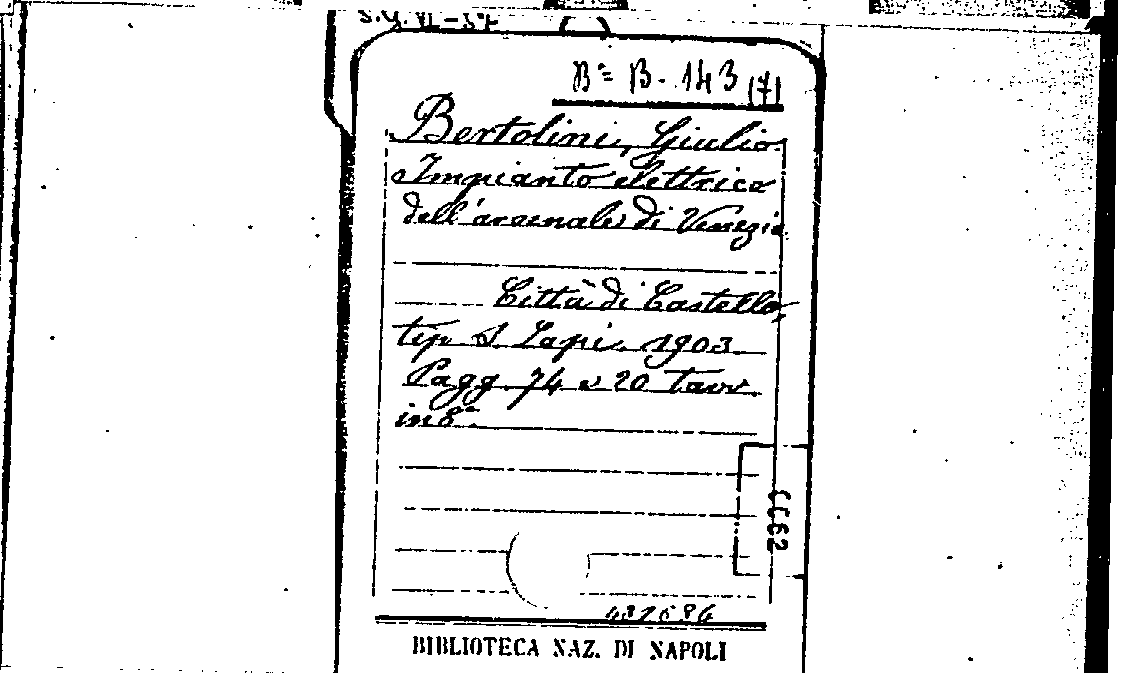 B.a B. 143 (7)
Bertolini, Giulio
Impianto elettrico
dell'arsenale di Venezia.
Città di Castello,
tip. S. Lapi. 1903
Pagg. 74 e 20 tavv.
in 8.°
BIBLIOTECA NAZ. DI NAPOLI